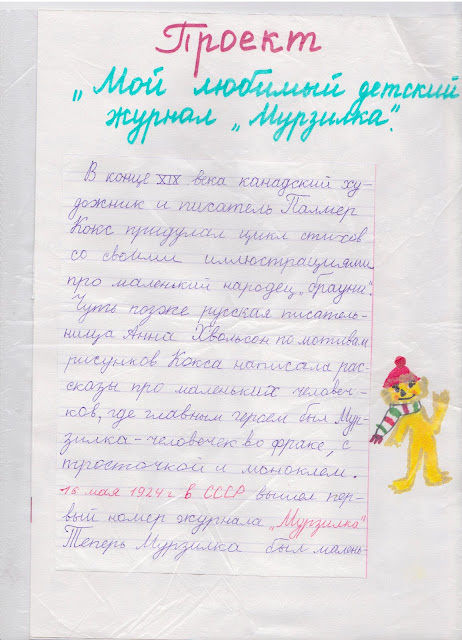 Проект
„Мой любимый детский
журнал „Мурзилка".
В конце XIX века канадский ху-
дожник и писатель Палмер
Кокс придумал цикл стихов
со своими иллюстрациями
про маленький народец „брауни".
Чуть позже русская писатель-
ница Анна Хвольсон по мотивам
рисунков Кокса написала рас-
сказы про маленьких человеч-
ков, где главным героем был Мур-
зилка-человечек во фраке, с
тросточкой и моноклем.
16 мая 1924 г. в СССР вышел пер-
вый номер журнала „Мурзилка"
Теперь Мурзилка был малень-